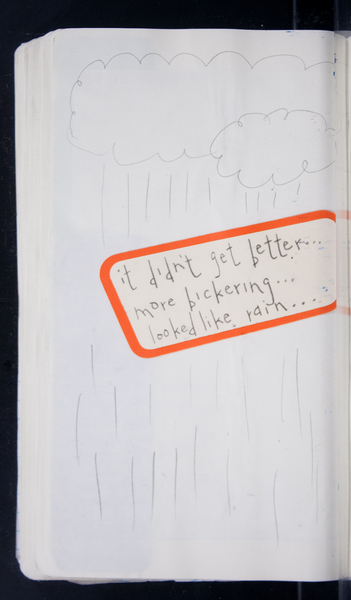 it didn't get better...
more bickering...
looked like rain....